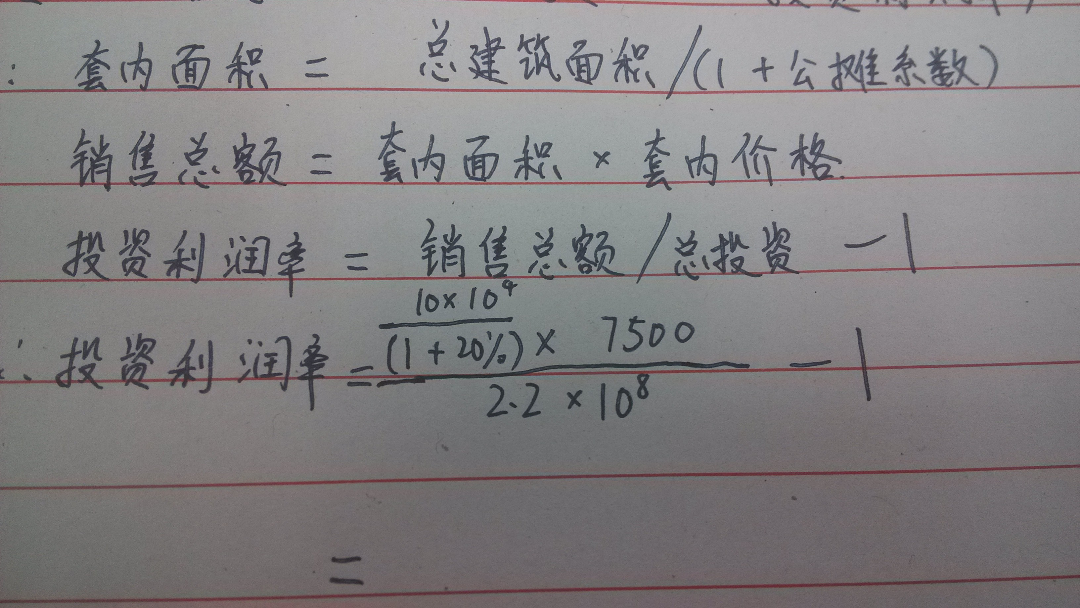 : 套内面积 = 总建筑面积/(1+公摊系数)
销售总额 = 套内面积 × 套内价格.
投资利润率 = 销售总额/总投资 -1
10×10⁴
∴ 投资利润率 = (1+20%) × 7500 -1
2.2×10⁸
=